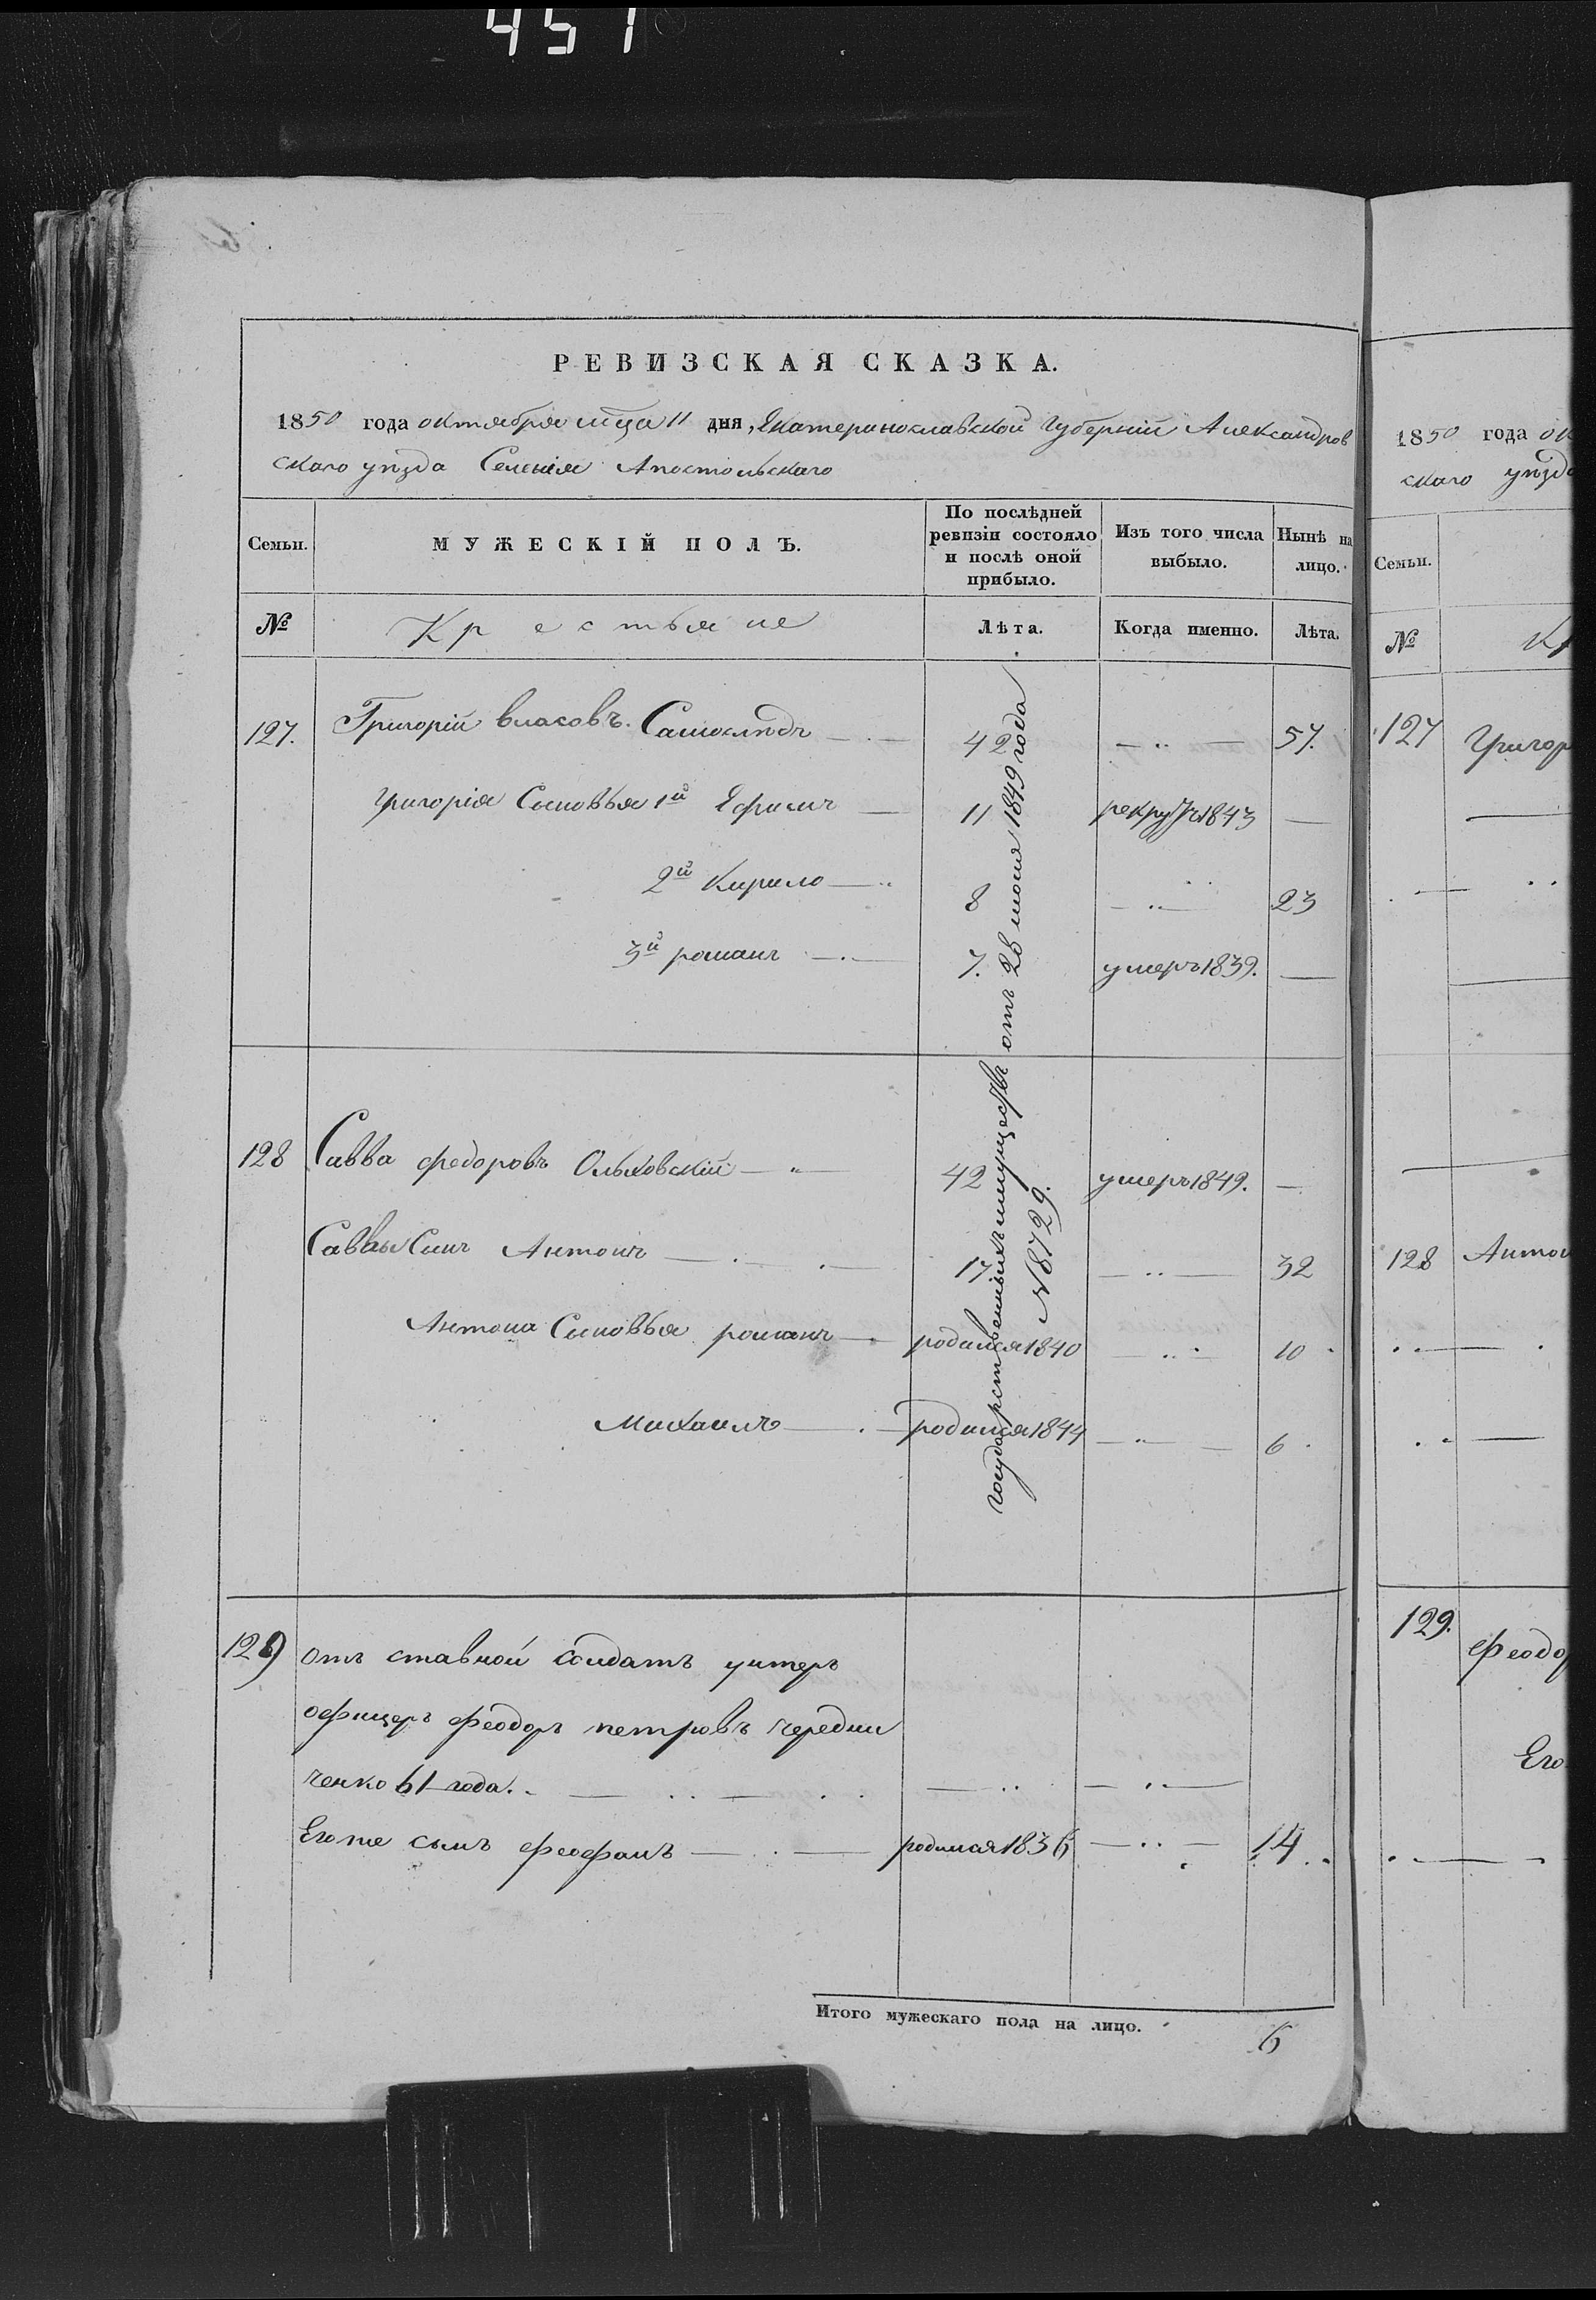 451
РЕВИЗСКАЯ СКАЗКА.
1850 года октября мца 11 дня, Екатеринославской Губерніи Александров
скаго уѣзда Селенія Апостольскаго
Семьи.
МУЖЕСКІЙ ПОЛЪ.
По послѣдней ревизіи состояло и послѣ оной прибыло.
Изъ того числа выбыло.
Нынѣ на лицо.
№
Крестьяне
Лѣта.
Когда именно.
Лѣта.
127. Григорій власовъ Самослѣдъ 42 57.
Григорія Сыновья 1й Ефимъ 11 рекрутъ 1843
2й Кирило 8 23
3й романъ 7. умеръ 1839.
128 Савва федоровъ Ольховскій 42 умеръ 1849.
Саввы Сынъ Антонъ 17 32
Антона Сыновья романъ родился 1840 10
Михаилъ родился 1844 6
государственныхъ имуществъ от 28 июля 1849 года
№ 8729.
129 отъ ставной солдатъ унтеръ
офицеръ феодоръ петровъ чередни
ченко 61 года.
Его же сынъ феофанъ родился 1836 14
Итого мужескаго пола на лицо. 6
1850 года ок
скаго уѣзд
Семьи.
№
Кр
127 Григор
128 Антон
129. феодо
Его